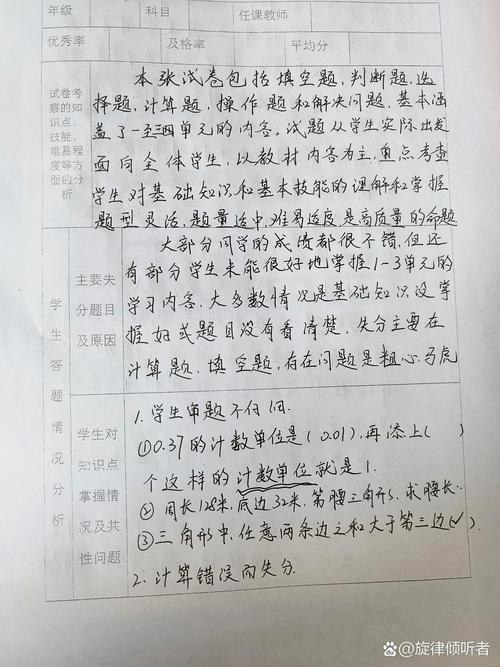 年级 科目 任课教师
优秀率 及格率 平均分
试卷考察的知识点、技能、难易程度等方面的分析
本张试卷包括填空题、判断题、选
择题、计算题、操作题和解决问题,基本涵
盖了一至四单元的内容。试题从学生实际出发
面向全体学生,以教材内容为主,重点考查
学生对基础知识和基本技能的理解和掌握
题型灵活、题量适中、难易适度,是高质量的命题
学生答题情况分析
主要失分题目及原因
大部分同学的成绩都很不错,但还
有部分学生未能很好地掌握1-3单元的
学习内容。大多数情况是基础知识没掌
握好或题目没有看清楚。失分主要在
计算题、填空题,存在问题是粗心马虎
学生对知识点掌握情况及共性问题
1.学生审题不仔细.
①0.37的计数单位是(0.01),再添上( )
个这样的计数单位就是1.
② 周长128米,底边32米,等腰三角形,求腰长…
③三角形中,任意两条边之和大于第三边(✓).
2.计算错误而失分.
Bai百科@旋律倾听者